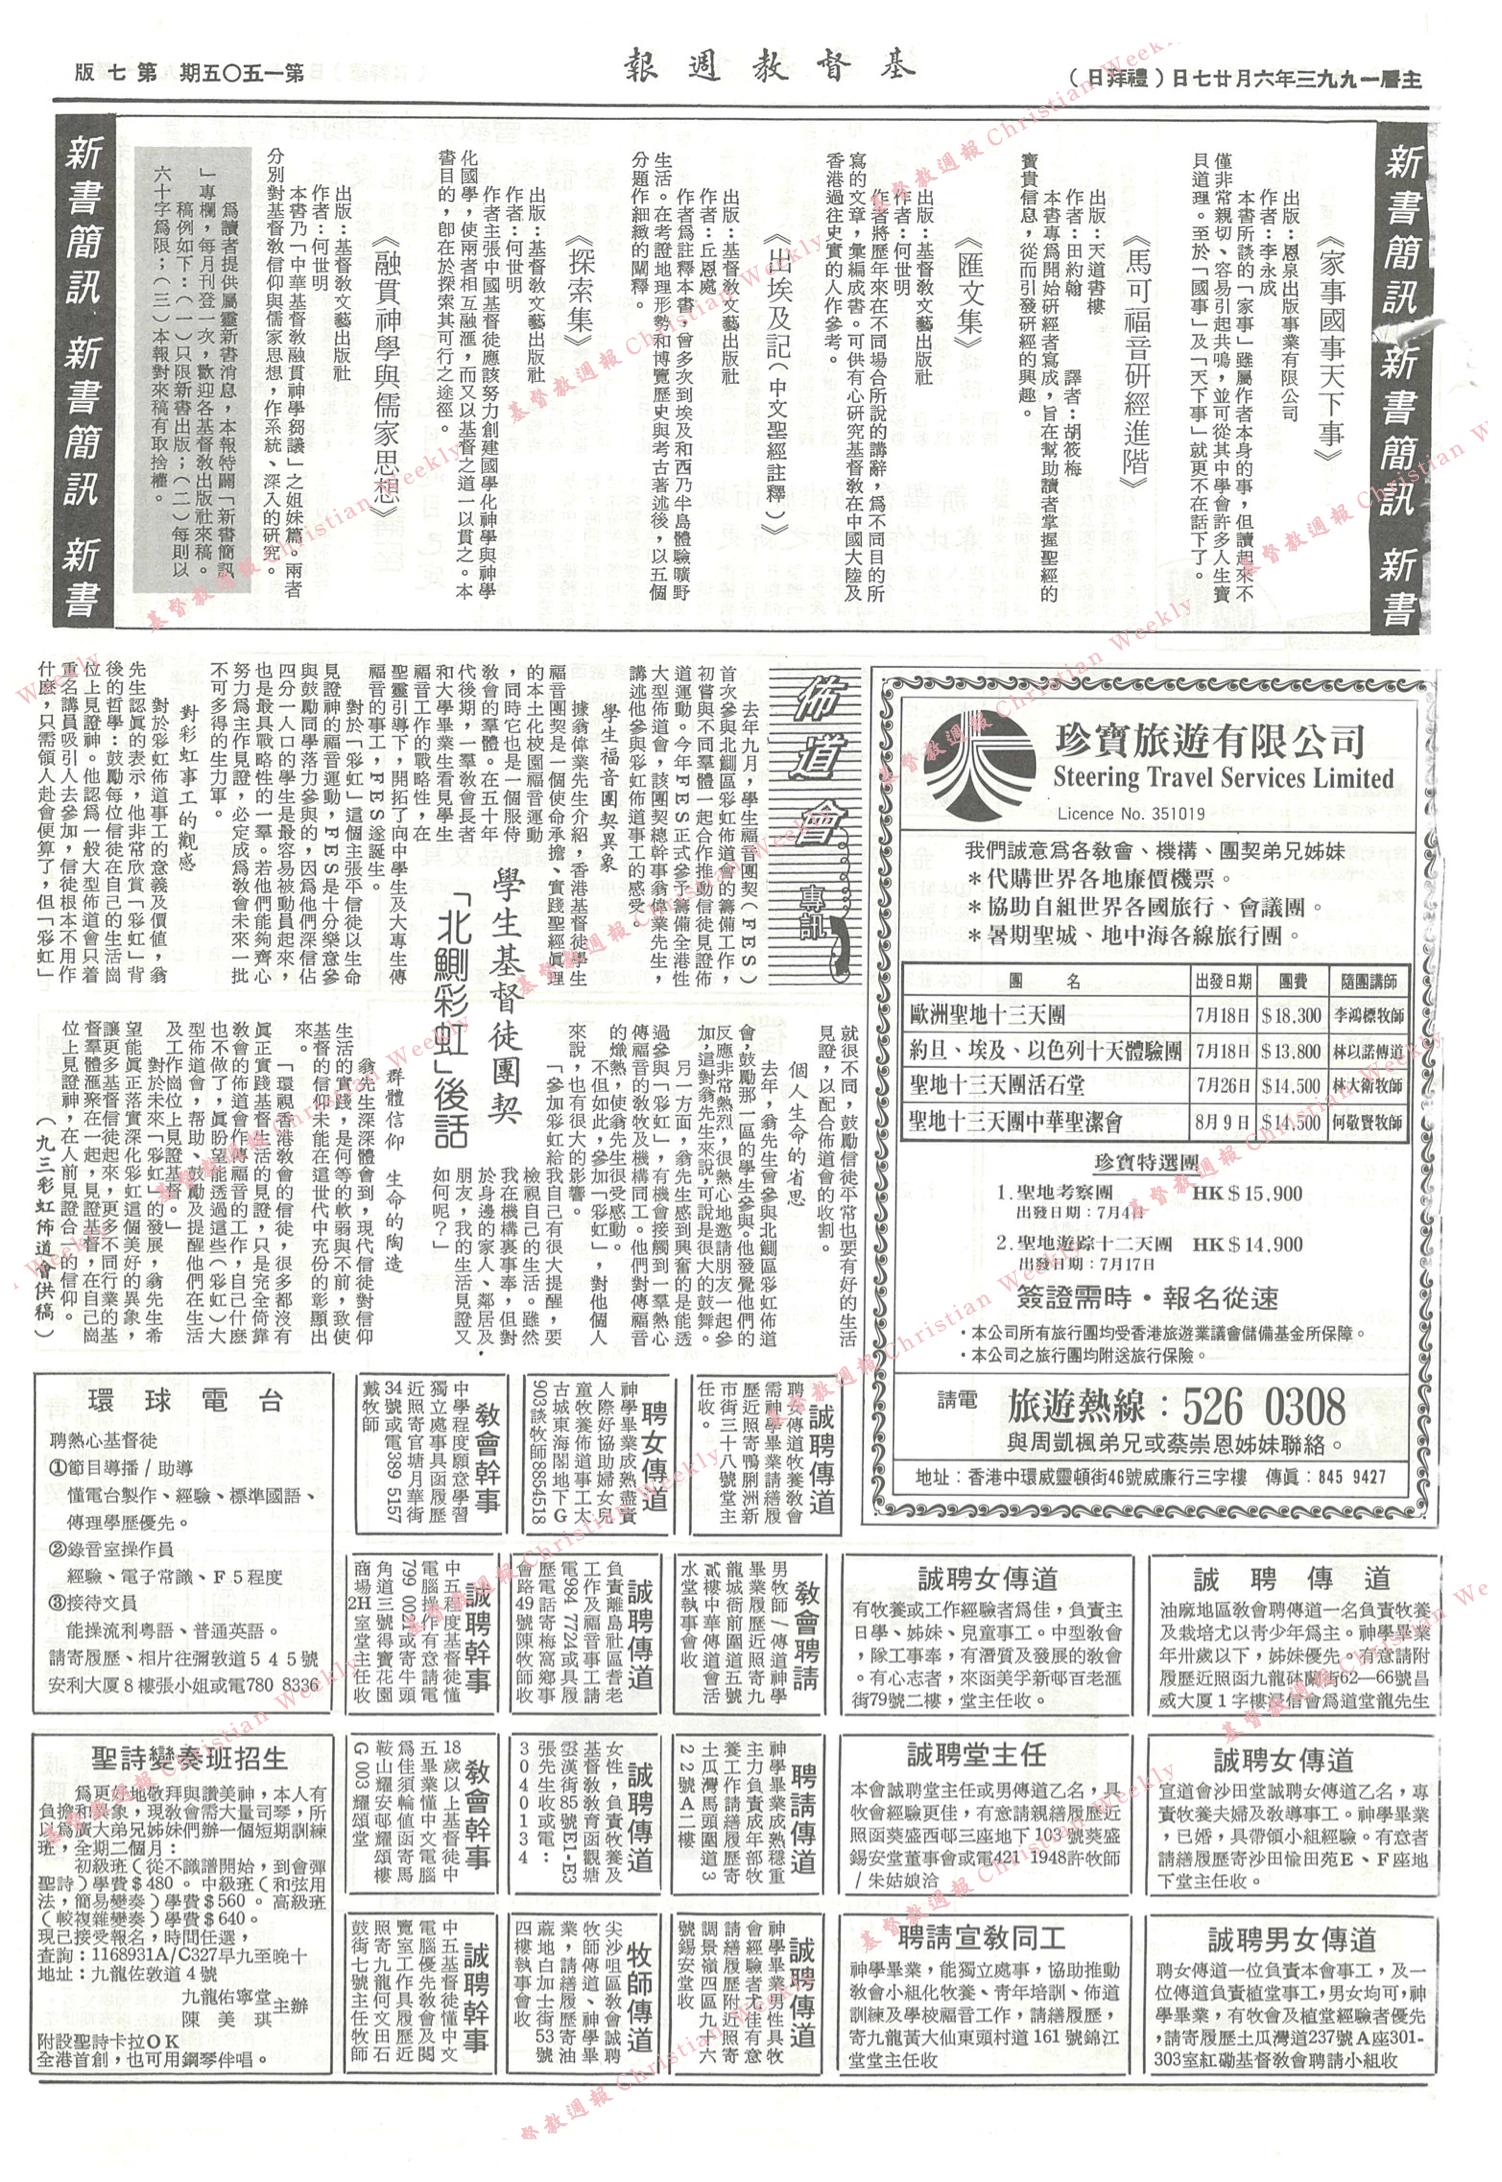 主曆一九九三年六月廿七日（禮拜日）
基督教週報
第一五〇五期　第七版
新書簡訊 新書簡訊 新書
《家事國事天下事》
出版：恩泉出版事業有限公司
作者：李永成
本書所談的「家事」雖屬作者本身的事，但讀起來不
僅非常親切、容易引起共鳴，並可從其中學會許多人生寶
貝道理。至於「國事」及「天下事」就更不在話下了。
《馬可福音研經進階》
出版：天道書樓
作者：田約翰　　　譯者：胡筱梅
本書專為開始研經者寫成，旨在幫助讀者掌握聖經的
寶貴信息，從而引發研經的興趣。
《匯文集》
出版：基督教文藝出版社
作者：何世明
作者將歷年來在不同場合所說的講辭，為不同目的所
寫的文章，彙編成書。可供有心研究基督教在中國大陸及
香港過往史實的人作參考。
《出埃及記（中文聖經註釋）》
出版：基督教文藝出版社
作者：丘恩處
作者為註釋本書，曾多次到埃及和西乃半島體驗曠野
生活。在考證地理形勢和博覽歷史與考古著述後，以五個
分題作細緻的闡釋。
《探索集》
出版：基督教文藝出版社
作者：何世明
作者主張中國基督徒應該努力創建國學化神學與神學
化國學，使兩者相互融滙，而又以基督之道一以貫之。本
書目的，卽在於探索其可行之途徑。
《融貫神學與儒家思想》
出版：基督教文藝出版社
作者：何世明
本書乃「中華基督教融貫神學芻議」之姐妹篇。兩者
分別對基督教信仰與儒家思想，作系統、深入的研究。
為讀者提供屬靈新書消息，本報特闢「新書簡訊
」專欄，每月刊登一次，歡迎各基督教出版社來稿。
稿例如下：（一）只限新書出版；（二）每則以
六十字為限；（三）本報對來稿有取捨權。
新書簡訊 新書簡訊 新書
佈道會
專訊
學生基督徒團契
「北鰂彩虹」後話
去年九月，學生福音團契（FES）
首次參與北鰂區彩虹佈道會的籌備工作，
初嘗與不同羣體一起合作推動信徒見證佈
道運動。今年FES正式參予籌備全港性
大型佈道會，該團契總幹事翁偉業先生，
講述他參與彩虹佈道事工的感受。
學生福音團契異象
據翁偉業先生介紹，香港基督徒學生
福音團契是一個使命承擔、實踐聖經眞理
的本土化校園福音運動
，同時它也是一個服侍
教會的羣體。在五十年
代後期，一羣教會長者
和大學畢業生看見學生
福音工作的戰略性，在
聖靈引導下，開拓了向中學生及大專生傳
福音的事工，FES遂誕生。
對於「彩虹」這個主張平信徒以生命
見證神的福音運動，FES是十分樂意參
與鼓勵同學落力參與的，因為他們深信佔
四分一人口的學生是最容易被動員起來，
也是最具戰略性的一羣。若他們能夠齊心
努力為主作見證，必定成為教會未來一批
不可多得的生力軍。
對彩虹事工的觀感
對於彩虹佈道事工的意義及價值，翁
先生認眞的表示，他非常欣賞「彩虹」背
後的哲學：鼓勵每位信徒在自己的生活崗
位上見證神。他認為一般大型佈道會只着
重名講員吸引人去參加，信徒根本不用作
什麼，只需領人赴會便算了，但「彩虹」
就很不同，鼓勵信徒平常也要有好的生活
見證，以配合佈道會的收割。
個人生命的省思
去年，翁先生曾參與北鰂區彩虹佈道
會，鼓勵那一區的學生參與。他發覺他們的
反應非常熱烈，很熱心地邀請朋友一起參
加，這對翁先生來說，可說是很大的鼓舞。
另一方面，翁先生感到興奮的是能透
過參與「彩虹」，有機會接觸到一羣熱心
傳福音的教牧及機構同工。他們對傳福音
的熾熱，使翁先生很受感動。
不但如此，參加「彩虹」，對他個人
來說，也有很大的影響。
「參加彩虹給我自己有很大提醒，要
檢視自己的生活。雖然
我在機構裏事奉，但對
於身邊的家人、鄰居及
朋友，我的生活見證又
如何呢？」
群體信仰　生命的陶造
翁先生深深體會到，現代信徒對信仰
生活的實踐，是何等的軟弱與不前，致使
基督的信仰未能在這世代中充份的彰顯出
來。
「環視香港教會的信徒，很多都沒有
眞正實踐基督生活的見證，只是完全倚靠
教會的佈道會作傳福音的工作，自己什麼
也不做了，眞盼望能透過這些（彩虹）大
型佈道會，帮助、鼓勵及提醒他們在生活
及工作崗位上見證基督。」
對於未來「彩虹」的發展，翁先生希
望能眞正落實深化彩虹這個美好的異象，
讓更多基督信徒起來，更多不同行業的基
督羣體滙聚在一起，見證基督，在自己崗
位上見證神，在人前見證合一的信仰。
（九三彩虹佈道會供稿）
珍寶旅遊有限公司
Steering Travel Services Limited
Licence No. 351019
我們誠意為各教會、機構、團契弟兄姊妹
＊代購世界各地廉價機票。
＊協助自組世界各國旅行、會議團。
＊暑期聖城、地中海各線旅行團。
團　名　出發日期　團費　隨團講師
歐洲聖地十三天團　7月18日　$18,300　李鴻標牧師
約旦、埃及、以色列十天體驗團　7月18日　$13,800　林以諾傳道
聖地十三天團活石堂　7月26日　$14,500　林大衛牧師
聖地十三天團中華聖潔會　8月9日　$14,500　何敬賢牧師
珍寶特選團
1. 聖地考察團　HK$15,900
出發日期：7月4日
2. 聖地遊踪十二天團　HK$14,900
出發日期：7月17日
簽證需時・報名從速
・本公司所有旅行團均受香港旅遊業議會儲備基金所保障。
・本公司之旅行團均附送旅行保險。
請電　旅遊熱線：526 0308
與周凱楓弟兄或蔡崇恩姊妹聯絡。
地址：香港中環威靈頓街46號威廉行三字樓　傳眞：845 9427
誠聘傳道
聘女傳道牧養教會
需神學畢業請繕履
歷近照寄鴨脷洲新
市街三十八號堂主
任收。
聘女傳道
神學畢業成熟盡責
人際好協助婦女兒
童牧養佈道事工太
古城東海閣地下G
903談牧師8845118
教會幹事
中學程度願意學習
獨立處事具函履歷
近照寄官塘月華街
34號或電389 5157
戴牧師
環球電台
聘熱心基督徒
①節目導播/助導
懂電台製作、經驗、標準國語、
傳理學歷優先。
②錄音室操作員
經驗、電子常識、F5程度
③接待文員
能操流利粵語、普通英語。
請寄履歷、相片往彌敦道545號
安利大厦8樓張小姐或電780 8336
誠聘傳道
油麻地區教會聘傳道一名負責牧養
及栽培尤以青少年為主。神學畢業
年卅歲以下，姊妹優先。有意請附
履歷近照函九龍砵蘭街62—66號昌
威大厦1字樓浸信會為道堂龍先生
誠聘女傳道
有牧養或工作經驗者為佳，負責主
日學、姊妹、兒童事工。中型教會
，隊工事奉，有潛質及發展的教會
。有心志者，來函美孚新邨百老滙
街79號二樓，堂主任收。
教會聘請
男牧師/傳道神學
畢業履歷近照寄九
龍城衙前圍道五號
貳樓中華傳道會活
水堂執事會收
誠聘傳道
負責離島社區耆老
工作及福音事工請
電984 7724或具履
歷電話寄梅窩鄉事
會路49號陳牧師收
誠聘幹事
中五程度基督徒懂
電腦操作有意請電
799 0021或寄牛頭
角道三號得寶花園
商場2H室堂主任收
聖詩變奏班招生
為更好地敬拜與讚美神，本人有
負擔和異象，現教會需大量司琴，所
以為廣大弟兄姊妹們辦一個短期訓練
班，全期二個月：
初級班（從不識譜開始，到會彈
聖詩）學費$480。中級班（和弦用
法，簡易變奏）學費$560。高級班
（較複雜變奏）學費$640。
現已接受報名，時間任選，
查詢：1168931A/C327早九至晚十
地址：九龍佐敦道4號
九龍佑寧堂
陳美琪　主辦
附設聖詩卡拉OK
全港首創，也可用鋼琴伴唱。
誠聘女傳道
宣道會沙田堂誠聘女傳道乙名，專
責牧養夫婦及教導事工。神學畢業
，已婚，具帶領小組經驗。有意者
請繕履歷寄沙田愉田苑E、F座地
下堂主任收。
誠聘堂主任
本會誠聘堂主任或男傳道乙名，具
牧會經驗更佳，有意請親繕履歷近
照函葵盛西邨三座地下103號葵盛
錫安堂董事會或電421 1948許牧師
/朱姑娘洽
聘請傳道
神學畢業成熟穩重
主力負責成年部牧
養工作請繕履歷寄
土瓜灣馬頭圍道3
22號A二樓
誠聘傳道
女性，負責牧養及
基督教教育函觀塘
雲漢街85號E1-E3
張先生收或電：
3040134
教會幹事
18歲以上基督徒中
五畢業懂中文電腦
為佳須輪值函寄馬
鞍山耀安邨耀頌樓
G003耀頌堂
誠聘男女傳道
聘女傳道一位負責本會事工，及一
位傳道負責植堂事工，男女均可，神
學畢業，有牧會及植堂經驗者優先
，請寄履歷土瓜灣道237號A座301-
303室紅磡基督教會聘請小組收
聘請宣教同工
神學畢業，能獨立處事，協助推動
教會小組化牧養、青年培訓、佈道
訓練及學校福音工作，請繕履歷，
寄九龍黃大仙東頭村道161號錦江
堂堂主任收
誠聘傳道
神學畢業男性具牧
會經驗者尤佳有意
請繕履歷附近照寄
調景嶺四區九十六
號錫安堂收
牧師傳道
尖沙咀區教會誠聘
牧師傳道、神學畢
業，請繕履歷寄油
蔴地白加士街53號
四樓執事會收
誠聘幹事
中五基督徒懂中文
電腦優先教會及閱
覽室工作具履歷近
照寄九龍何文田石
鼓街七號主任牧師
基督教週報 Christian Weekly